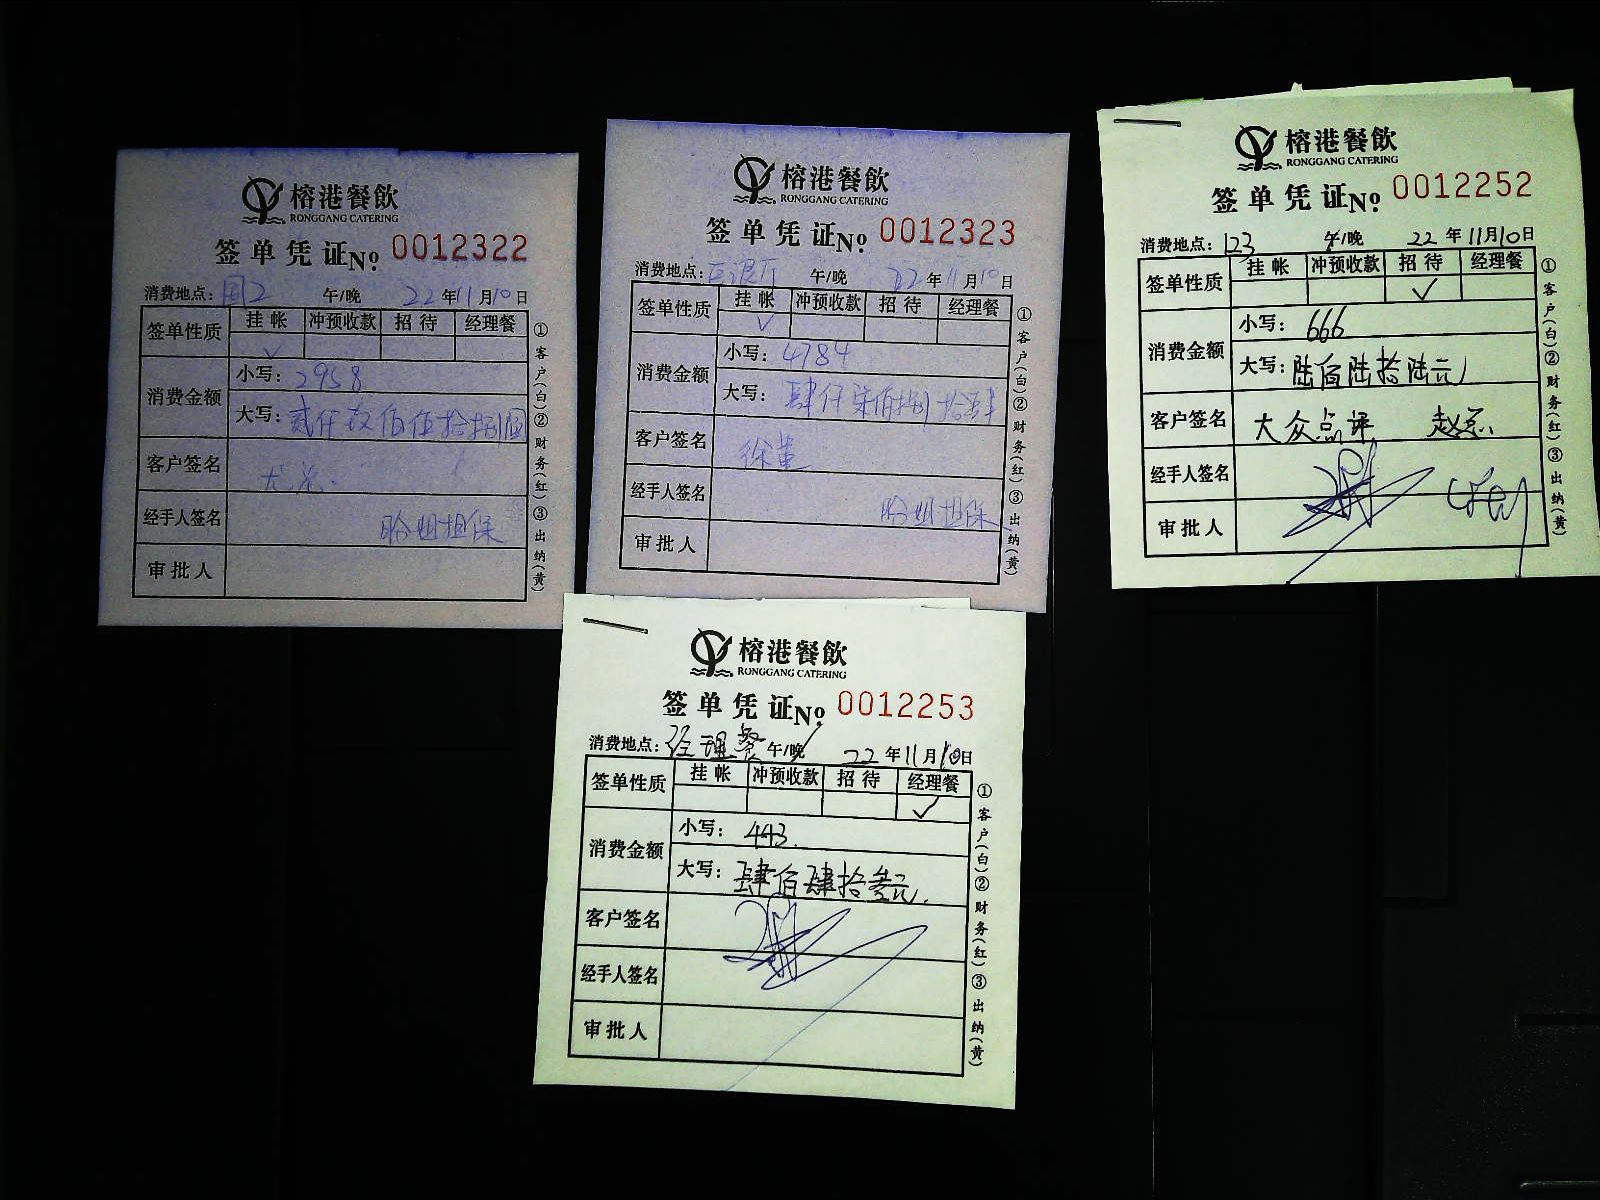 榕港餐飲
RONGGANG CATERING
签单凭证 No. 0012322
消费地点: 午/晚 22年11月10日
签单性质 挂帐 冲预收款 招待 经理餐
✓
消费金额 小写: 2958
大写: 贰仟玖佰伍拾捌圆
客户签名
经手人签名 担保
审批人
①客户(白)②财务(红)③出纳(黄)
榕港餐飲
RONGGANG CATERING
签单凭证 No. 0012323
消费地点: 午/晚 22年11月10日
签单性质 挂帐 冲预收款 招待 经理餐
✓
消费金额 小写: 4784
大写: 肆仟柒佰捌拾肆
客户签名 徐
经手人签名 担保
审批人
①客户(白)②财务(红)③出纳(黄)
榕港餐飲
RONGGANG CATERING
签单凭证 No. 0012252
消费地点: 123 午/晚 22年11月10日
签单性质 挂帐 冲预收款 招待 经理餐
✓
消费金额 小写: 666
大写: 陆佰陆拾陆元
客户签名 大众点评 赵
经手人签名
审批人
①客户(白)②财务(红)③出纳(黄)
榕港餐飲
RONGGANG CATERING
签单凭证 No. 0012253
消费地点: 经理餐 午/晚 22年11月10日
签单性质 挂帐 冲预收款 招待 经理餐
✓
消费金额 小写: 443.
大写: 肆佰肆拾叁元.
客户签名
经手人签名
审批人
①客户(白)②财务(红)③出纳(黄)